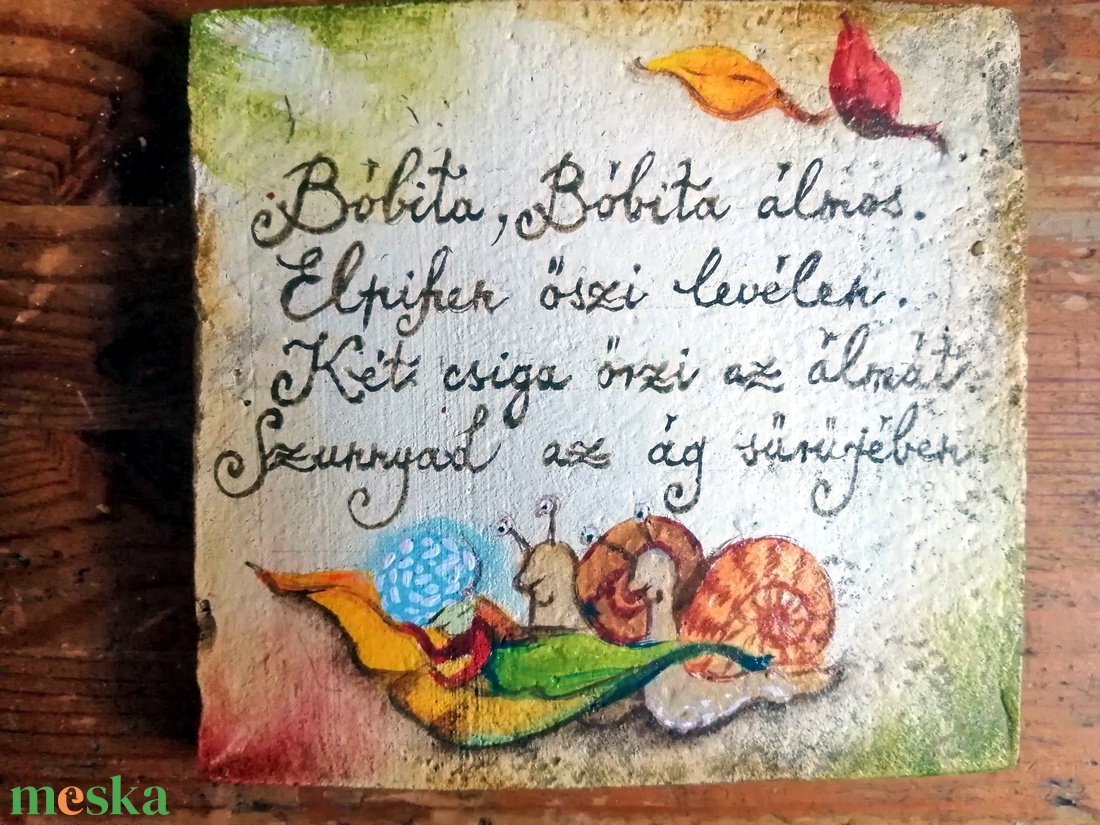 Bóbita, Bóbita álmos.
Elpihen őszi levélen.
Két csiga őrzi az álmát.
Szunnyad az ág sűrűjében.
meska